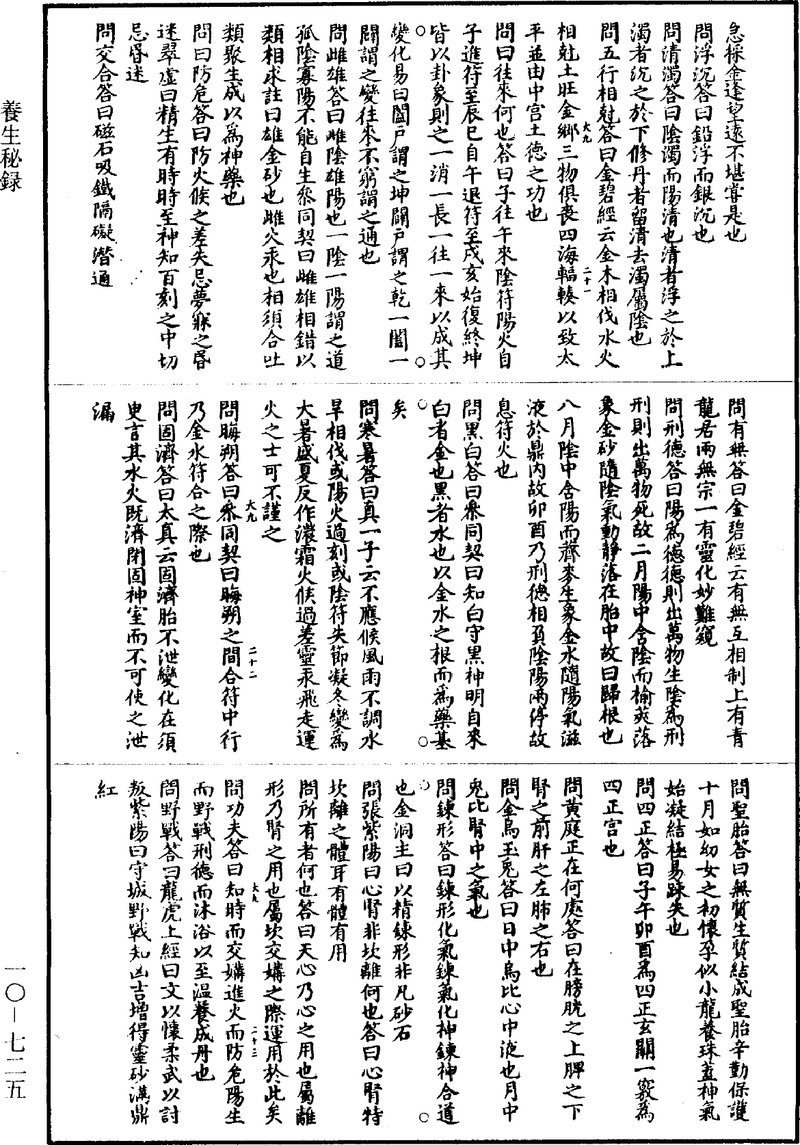 急採金逢望遠不堪嘗是也
問浮沉答曰鉛浮而銀沉也
問清濁答曰陰濁而陽清也清者浮之於上
濁者沉之於下修丹者留清去濁屬陰也
問五行相尅答曰金碧經云金木相伐水火
相尅土旺金鄉三物俱喪四海輻輳以致太
平並由中宮土德之功也
問曰往來何也答曰子往午來陰符陽火自
子進符至辰巳自午退符至戌亥始復終坤
皆以卦象則之一消一長一往一來以成其
變化易曰闔戶謂之坤闢戶謂之乾一闔一
闢謂之變往來不窮謂之通也
問雌雄答曰雌陰雄陽也一陰一陽謂之道
孤陰寡陽不能自生參同契曰雌雄相錯以
類相求註曰雄金砂也雌火汞也相須合吐
類聚生成以爲神藥也
問曰防危答曰防火候之差失忌夢寐之昏
迷翠虛曰精生有時時至神知百刻之中切
忌昏迷
問交合答曰磁石吸鐵隔礙潛通
大九
二十一
問有無答曰金碧經云有無互相制上有青
龍君兩無宗一有靈化妙難窺
問刑德答曰陽爲德德則出萬物生陰爲刑
刑則出萬物死故二月陽中含陰而榆莢落
象金砂隨陰氣動靜落在胎中故曰歸根也
八月陰中含陽而薺麥生象金水隨陽氣滋
液於鼎內故卯酉乃刑德相負陰陽兩停故
息符火也
問黑白答曰參同契曰知白守黑神明自來
白者金也黑者水也以金水之根而爲藥基
矣
問寒暑答曰真一子云不應候風雨不調水
旱相伐或陽火過刻或陰符失節凝冬變爲
大暑盛夏反作濃霜火候過差靈汞飛走運
火之士可不謹之
問晦朔答曰參同契曰晦朔之間合符中行
乃金水符合之際也
問固濟答曰太真云固濟胎不泄變化在須
臾言其水火既濟閉固神室而不可使之泄
漏
大九
二十二
問聖胎答曰無質生質結成聖胎辛勤保護
十月如幼女之初懷孕似小龍養珠蓋神氣
始凝結極易踈失也
問四正答曰子午卯酉爲四正玄關一竅爲
四正宮也
問黃庭正在何處答曰在膀胱之上脾之下
腎之前肝之左肺之右也
問金烏玉兔答曰日中烏比心中液也月中
兔比腎中之氣也
問鍊形答曰鍊形化氣鍊氣化神鍊神合道
也金洞主曰以精鍊形非凡砂石
問張紫陽曰心腎非坎離何也答曰心腎特
坎離之體耳有體有用
問所有者何也答曰天心乃心之用也屬離
形乃腎之用也屬坎交媾之際運用於此矣
問功夫答曰知時而交媾進火而防危陽生
而野戰刑德而沐浴以至溫養成丹也
問野戰答曰龍虎上經曰文以懷柔武以討
叛紫陽曰守城野戰知凶吉增得靈砂滿鼎
紅
大九
二十三
養生秘録
一〇—七二五